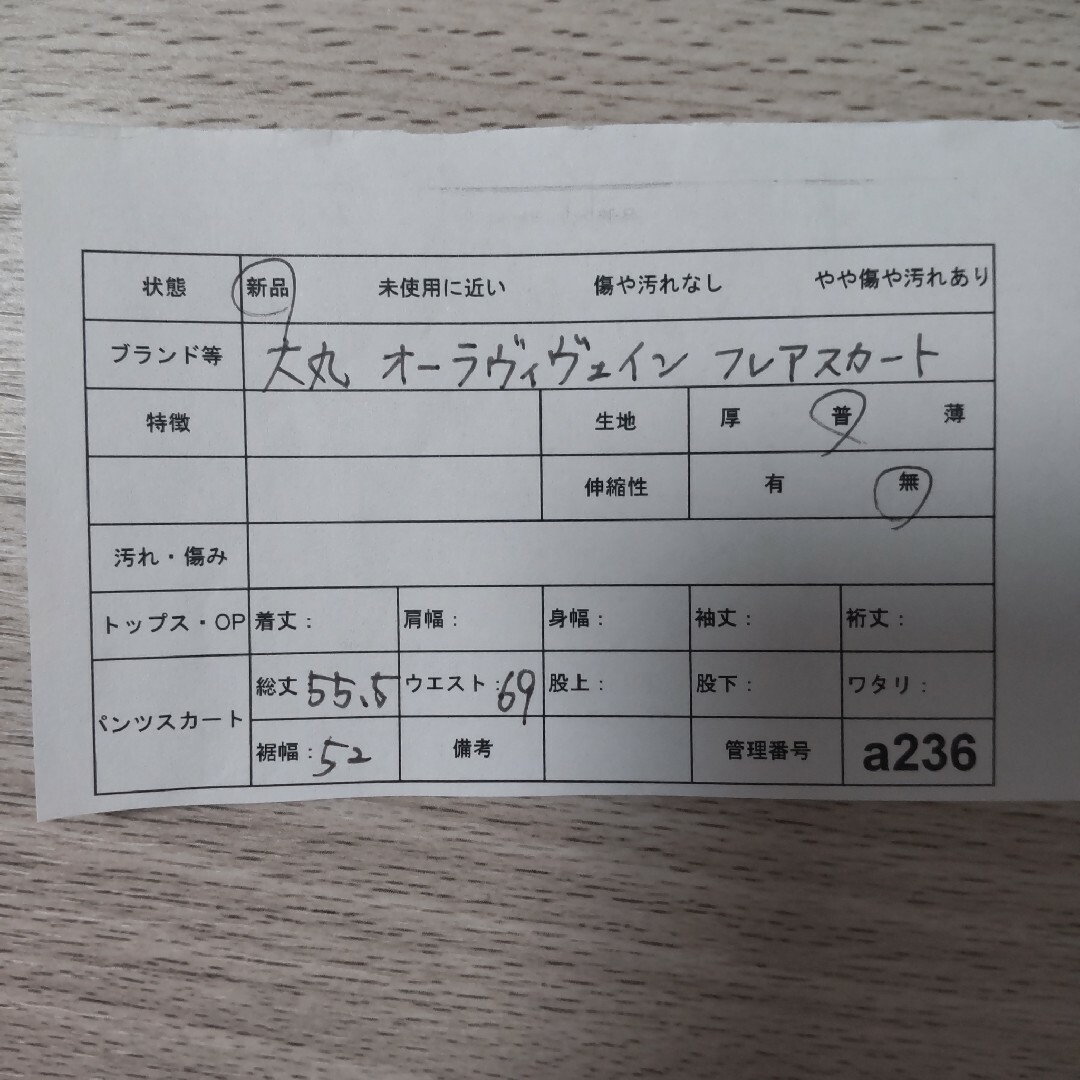 状態 新品 未使用に近い 傷や汚れなし やや傷や汚れあり
ブランド等 大丸 オーラヴィヴェイン フレアスカート
特徴 生地 厚 普 薄
伸縮性 有 無
汚れ・傷み
トップス・OP 着丈: 肩幅: 身幅: 袖丈: 裄丈:
パンツスカート 総丈 55.5 ウエスト: 69 股上: 股下: ワタリ:
裾幅: 52 備考 管理番号 a236